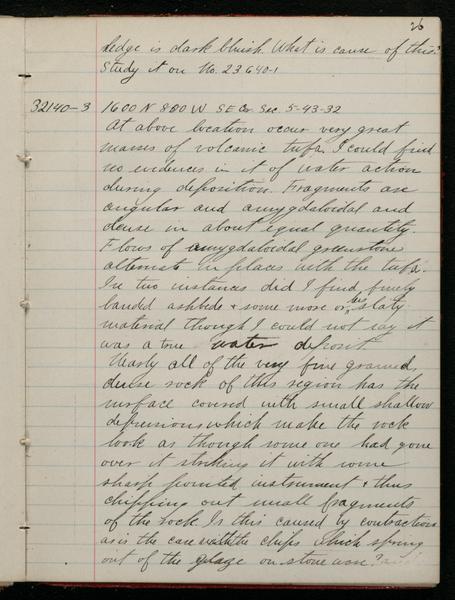 26
ledge is dark bluish. What is cause of this?
Study it on No. 23640-1
32140-3 1600 N 800 W. SE Cor. Sec. 5-43-32
At above location occur very great
masses of volcanic tufa. I could find
no evidences in it of water action
during deposition. Fragments are
angular and amygdaloidal and
dense in about equal quantity.
Flows of amygdaloidal greenstone
alternate in places with the tufa.
In two instances did I find finely
banded ashbeds & some more or less slaty
material though I could not say it
was a true water deposit.
Nearly all of the very fine grained,
dense rock of this region has the
surface covered with small shallow
depressions which make the rock
look as though some one had gone
over it striking it with some
sharp pointed instrument & thus
chipping out small fragments
of the rock. Is this caused by contraction
as is the case with the chips which spring
out of the glaze on stone ware?